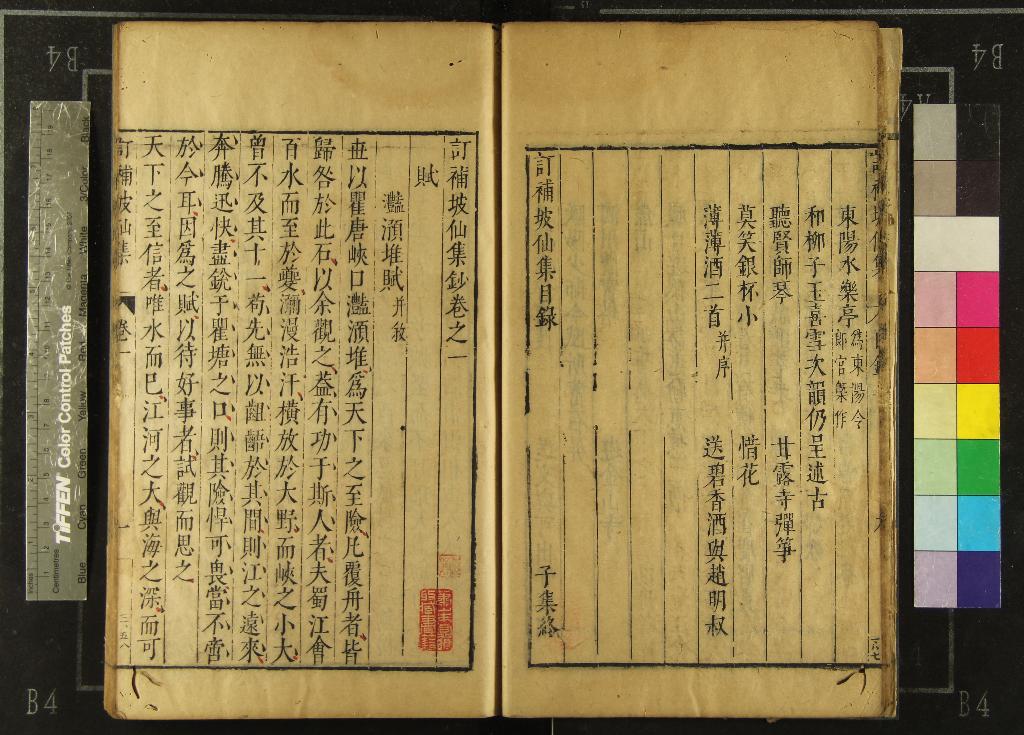 東陽水樂亭 為東陽令
郎官樂作
和柳子玉喜雪次韻仍呈述古
聽賢師琴 甘露寺彈箏
莫笑銀杯小 惜花
薄薄酒二首 并序 送碧香酒與趙明叔
訂補坡仙集目錄 子集終
訂補坡仙集鈔卷之一
賦
灩澦堆賦 并敘
世以瞿唐峽口灩澦堆爲天下之至險凡覆舟者皆
歸咎於此石以余觀之葢有功于斯人者夫蜀江會
百水而至於夔瀰漫浩汗橫放於大野而峽之小大
曾不及其十一苟先無以齟齬於其間則江之遠來
奔騰迅快盡銳于瞿塘之口則其險悍可畏當不啻
於今耳因爲之賦以待好事者試觀而思之
天下之至信者唯水而已江河之大與海之深而可
訂補坡仙集 卷一 一
B4
B4
B4
B4
TIFFEN Color Control Patches
Blue Cyan Green Yellow Red Magenta White 3/Color Black
Inches
Centimetres